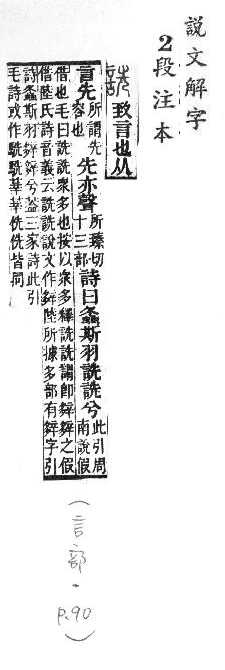 説文解字
2段注本
詵 致言也从
言先 所謂先容也 先亦聲 所臻切十三部 詩曰螽斯羽詵詵兮 此引周南說假
借也毛曰詵詵衆多也按以衆多釋詵詵謂卽之假
借陸氏詩音義云詵詵說文作陸所據多部有字引
詩螽斯羽兮葢三家詩此引
毛詩或作駪駪莘莘侁侁皆同
(言部・P.90)